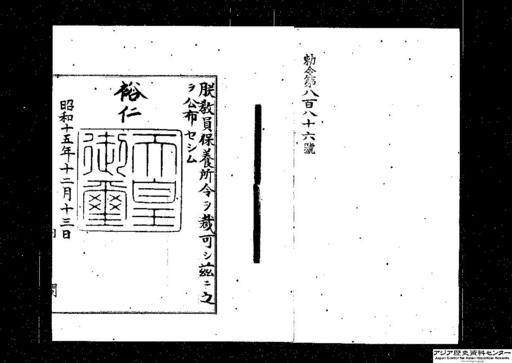 勅令第八百八十六號
朕教員保養所令ヲ裁可シ茲ニ之
ヲ公布セシム
裕仁
天皇
御璽
昭和十五年十二月十三日
アジア歴史資料センター
Japan Center for Asian Historical Records